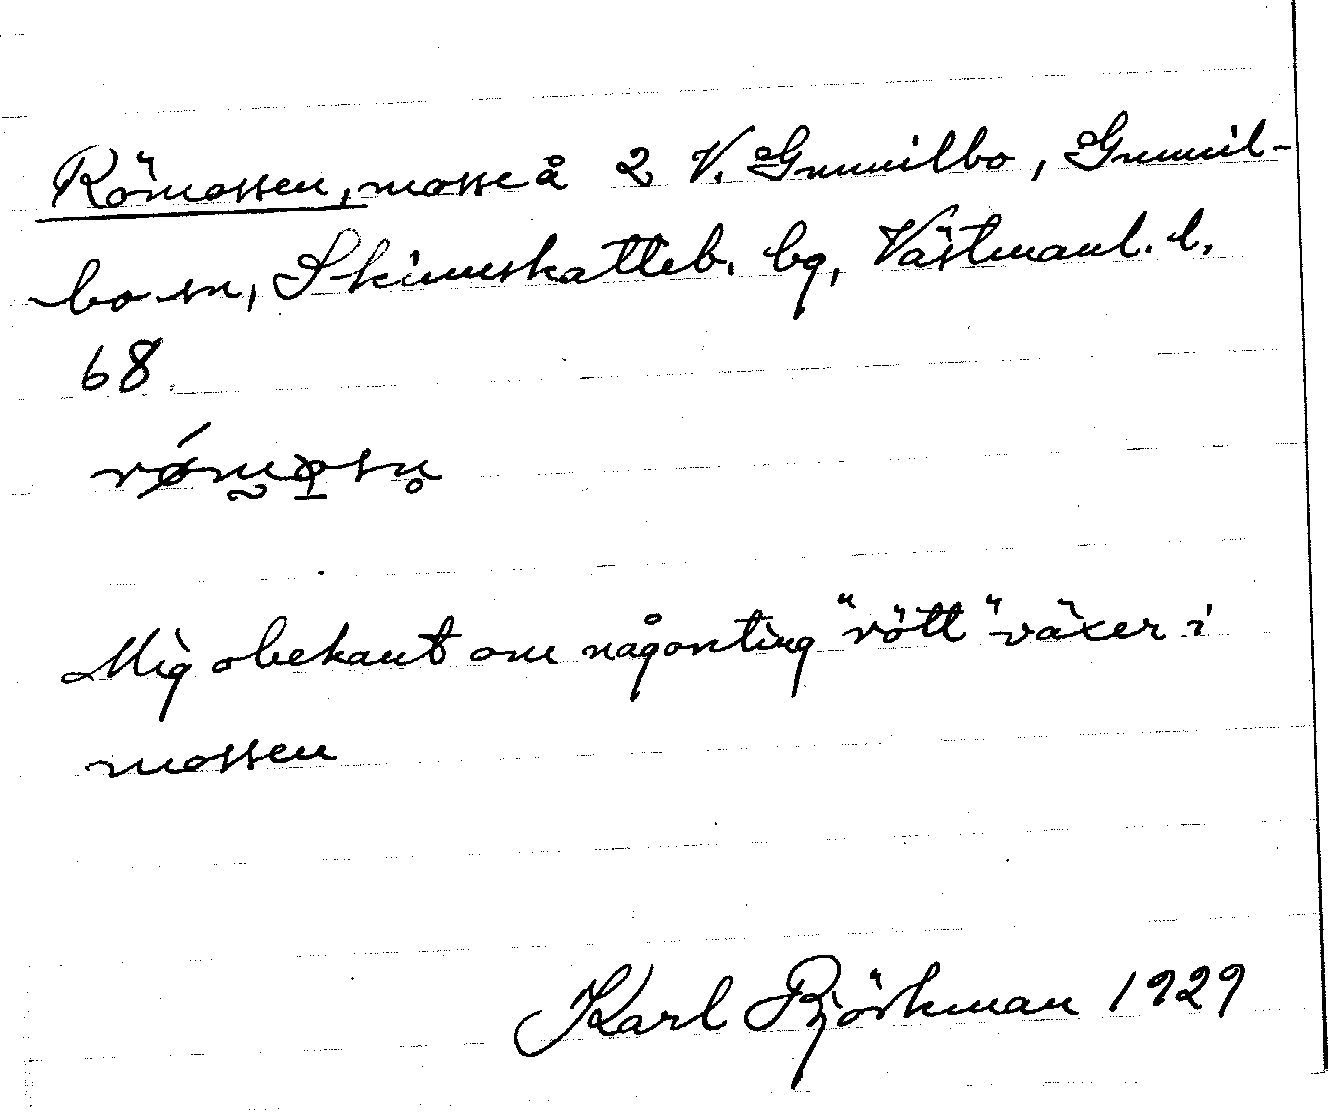 Römossen, mosse å 2 V. Gunnilbo, Gunnil-
bo sn, Skinnskatteb. bg, Västmanl. l.
68.
Mig obekant om någonting "rött" växer i
mossen
Karl Björkman 1929